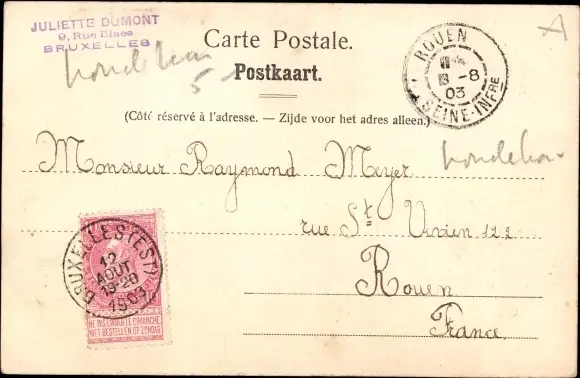 JULIETTE DUMONT
9, Rue Blaes
BRUXELLES
Carte Postale.
Postkaart.
(Côté réservé à l'adresse. — Zijde voor het adres alleen.)
ROUEN
-8
03
SEINE-INFRE
Monsieur Raymond Meyer
rue St Vivien 122
Rouen
France.
BRUXELLES (EST)
12
AOUT
19-20
1903
NE PAS LIVRER LE DIMANCHE
NIET BESTELLEN OP ZONDAG